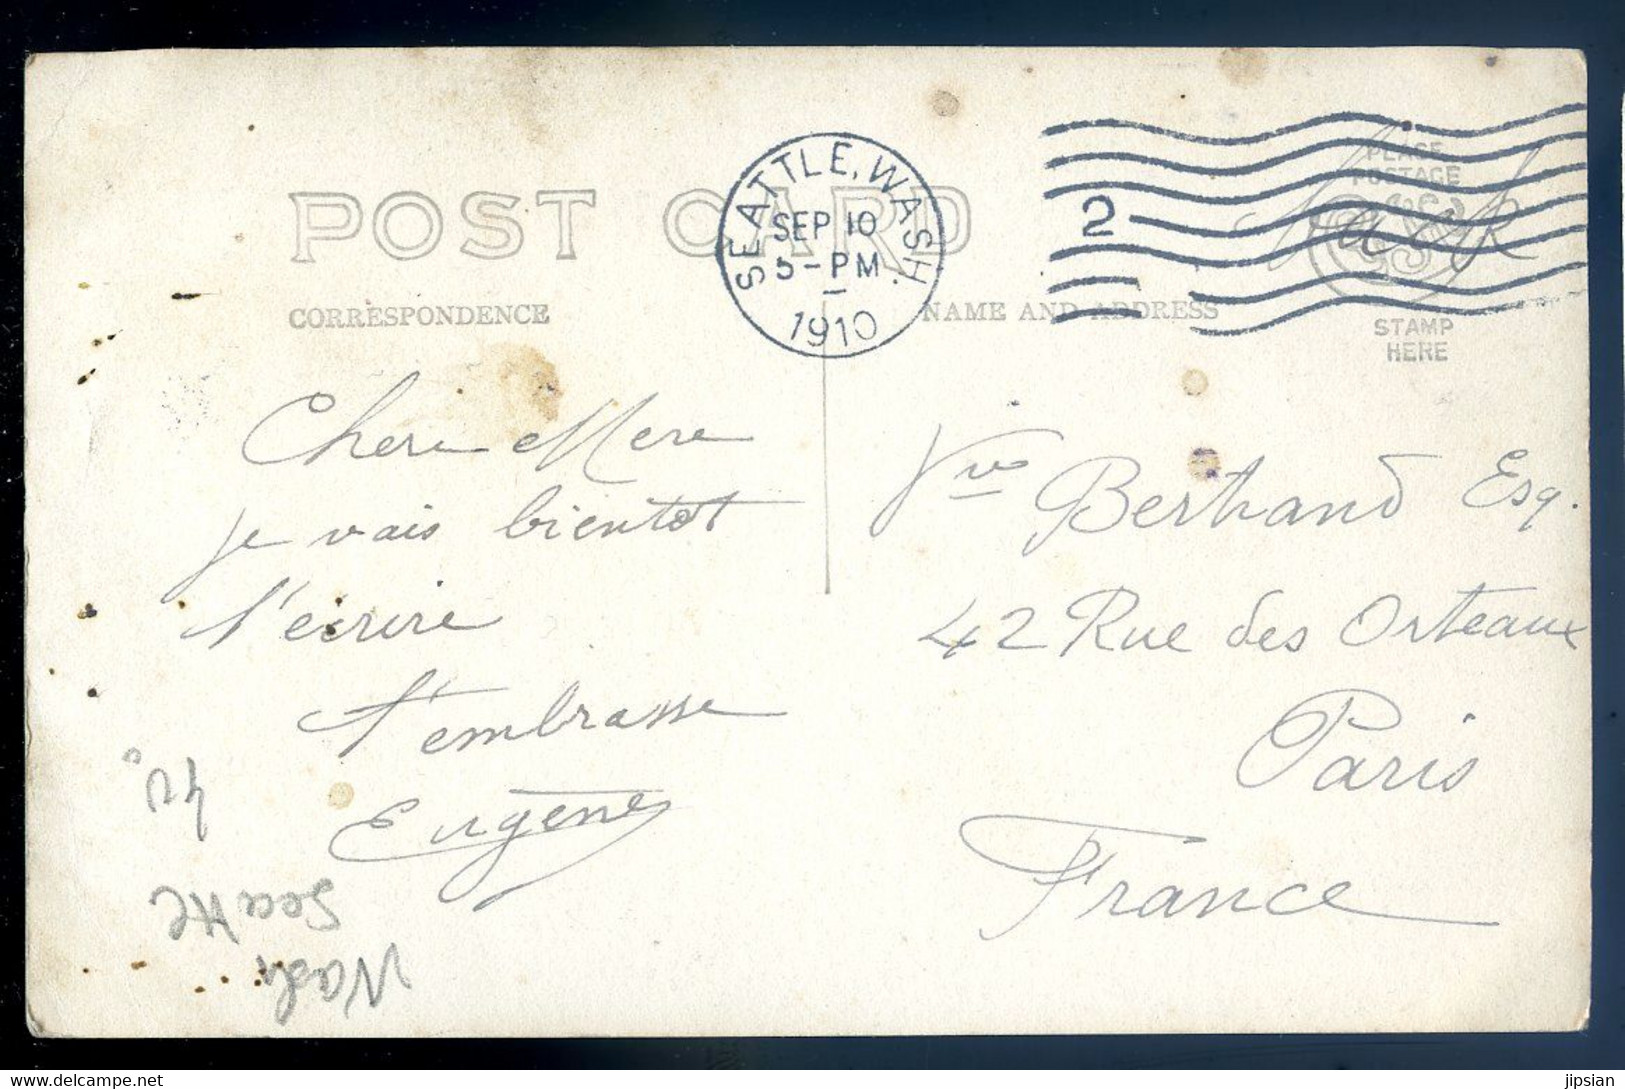 POST CARD
SEATTLE, WASH.
SEP 10
5-PM
1910
2
PLACE
POSTAGE
STAMP
HERE
CORRESPONDENCE
NAME AND ADDRESS
Chere Mere
je vais bientot
t'ecrire
t'embrasse
Eugène
Vve Bertrand Esq.
42 Rue des Orteaux
Paris
France
Wash
Seattle
jipsian